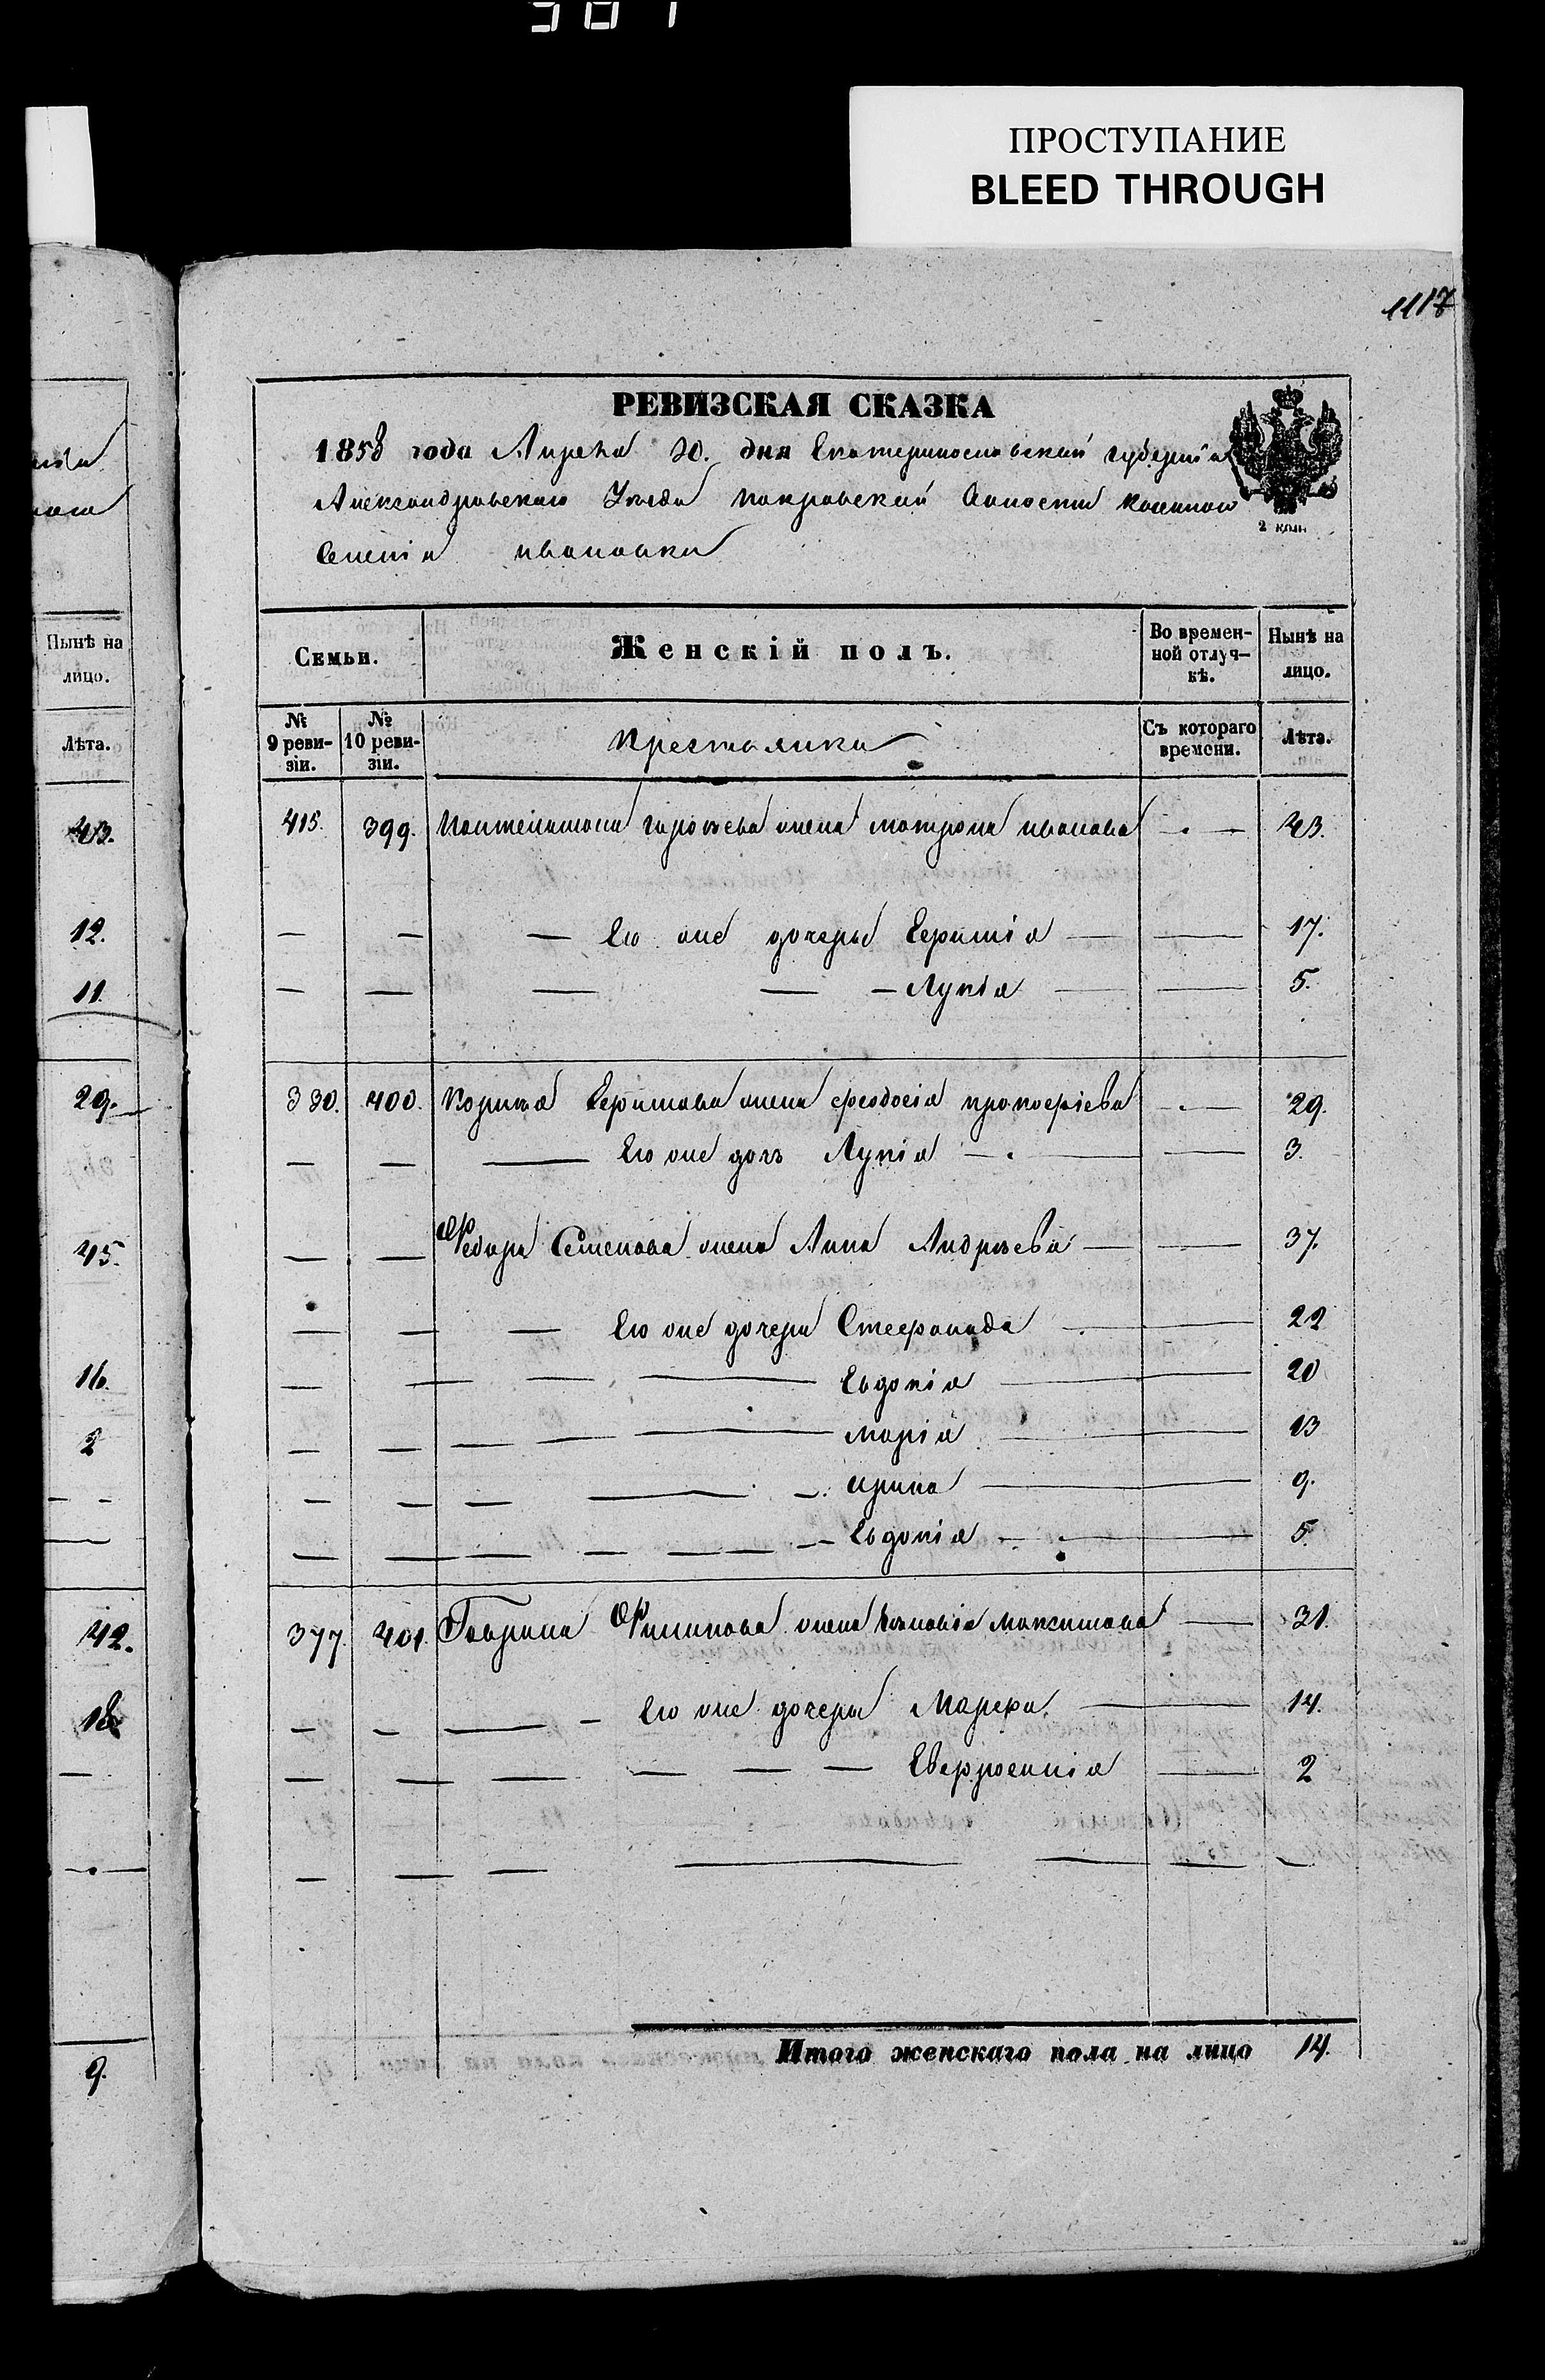 ПРОСТУПАНИЕ
BLEED THROUGH
1117
РЕВИЗСКАЯ СКАЗКА
1858 года Апреля 20. дня Екатеринославской губерніи
Александровскаго Уезда Покровской Волости казенного
Селенія Ивановки
2 коп
Семьи.
Женскій полъ.
Во времен-
ной отлуч-
кѣ.
Нынѣ на
лицо.
№ 9 реви-
зіи.
№ 10 реви-
зіи.
Крестьянки
Съ котораго
времени.
Лѣта.
415. 399. Пантелимона жена Матрона Иванова 43.
Его же дочери Ефимія 17.
Лукія 5.
330. 400. Ефимова жена Феодосія Прокофіева 29.
Его же дочь Лукія 3.
Федора Семенова жена Анна Андреева 37.
Его же дочери Стефанида 22
Евдокія 20
Марія 13
Ирина 9.
Евдокія 5.
377. 401. Гаврила Филипова жена Максимова 31.
Его же дочери Марфа 14.
Евфросинія 2
Итого женскаго пола на лицо 14.
Нынѣ на
лицо.
Лѣта.
43.
12.
11.
29.
45.
16.
2
42.
18
9.